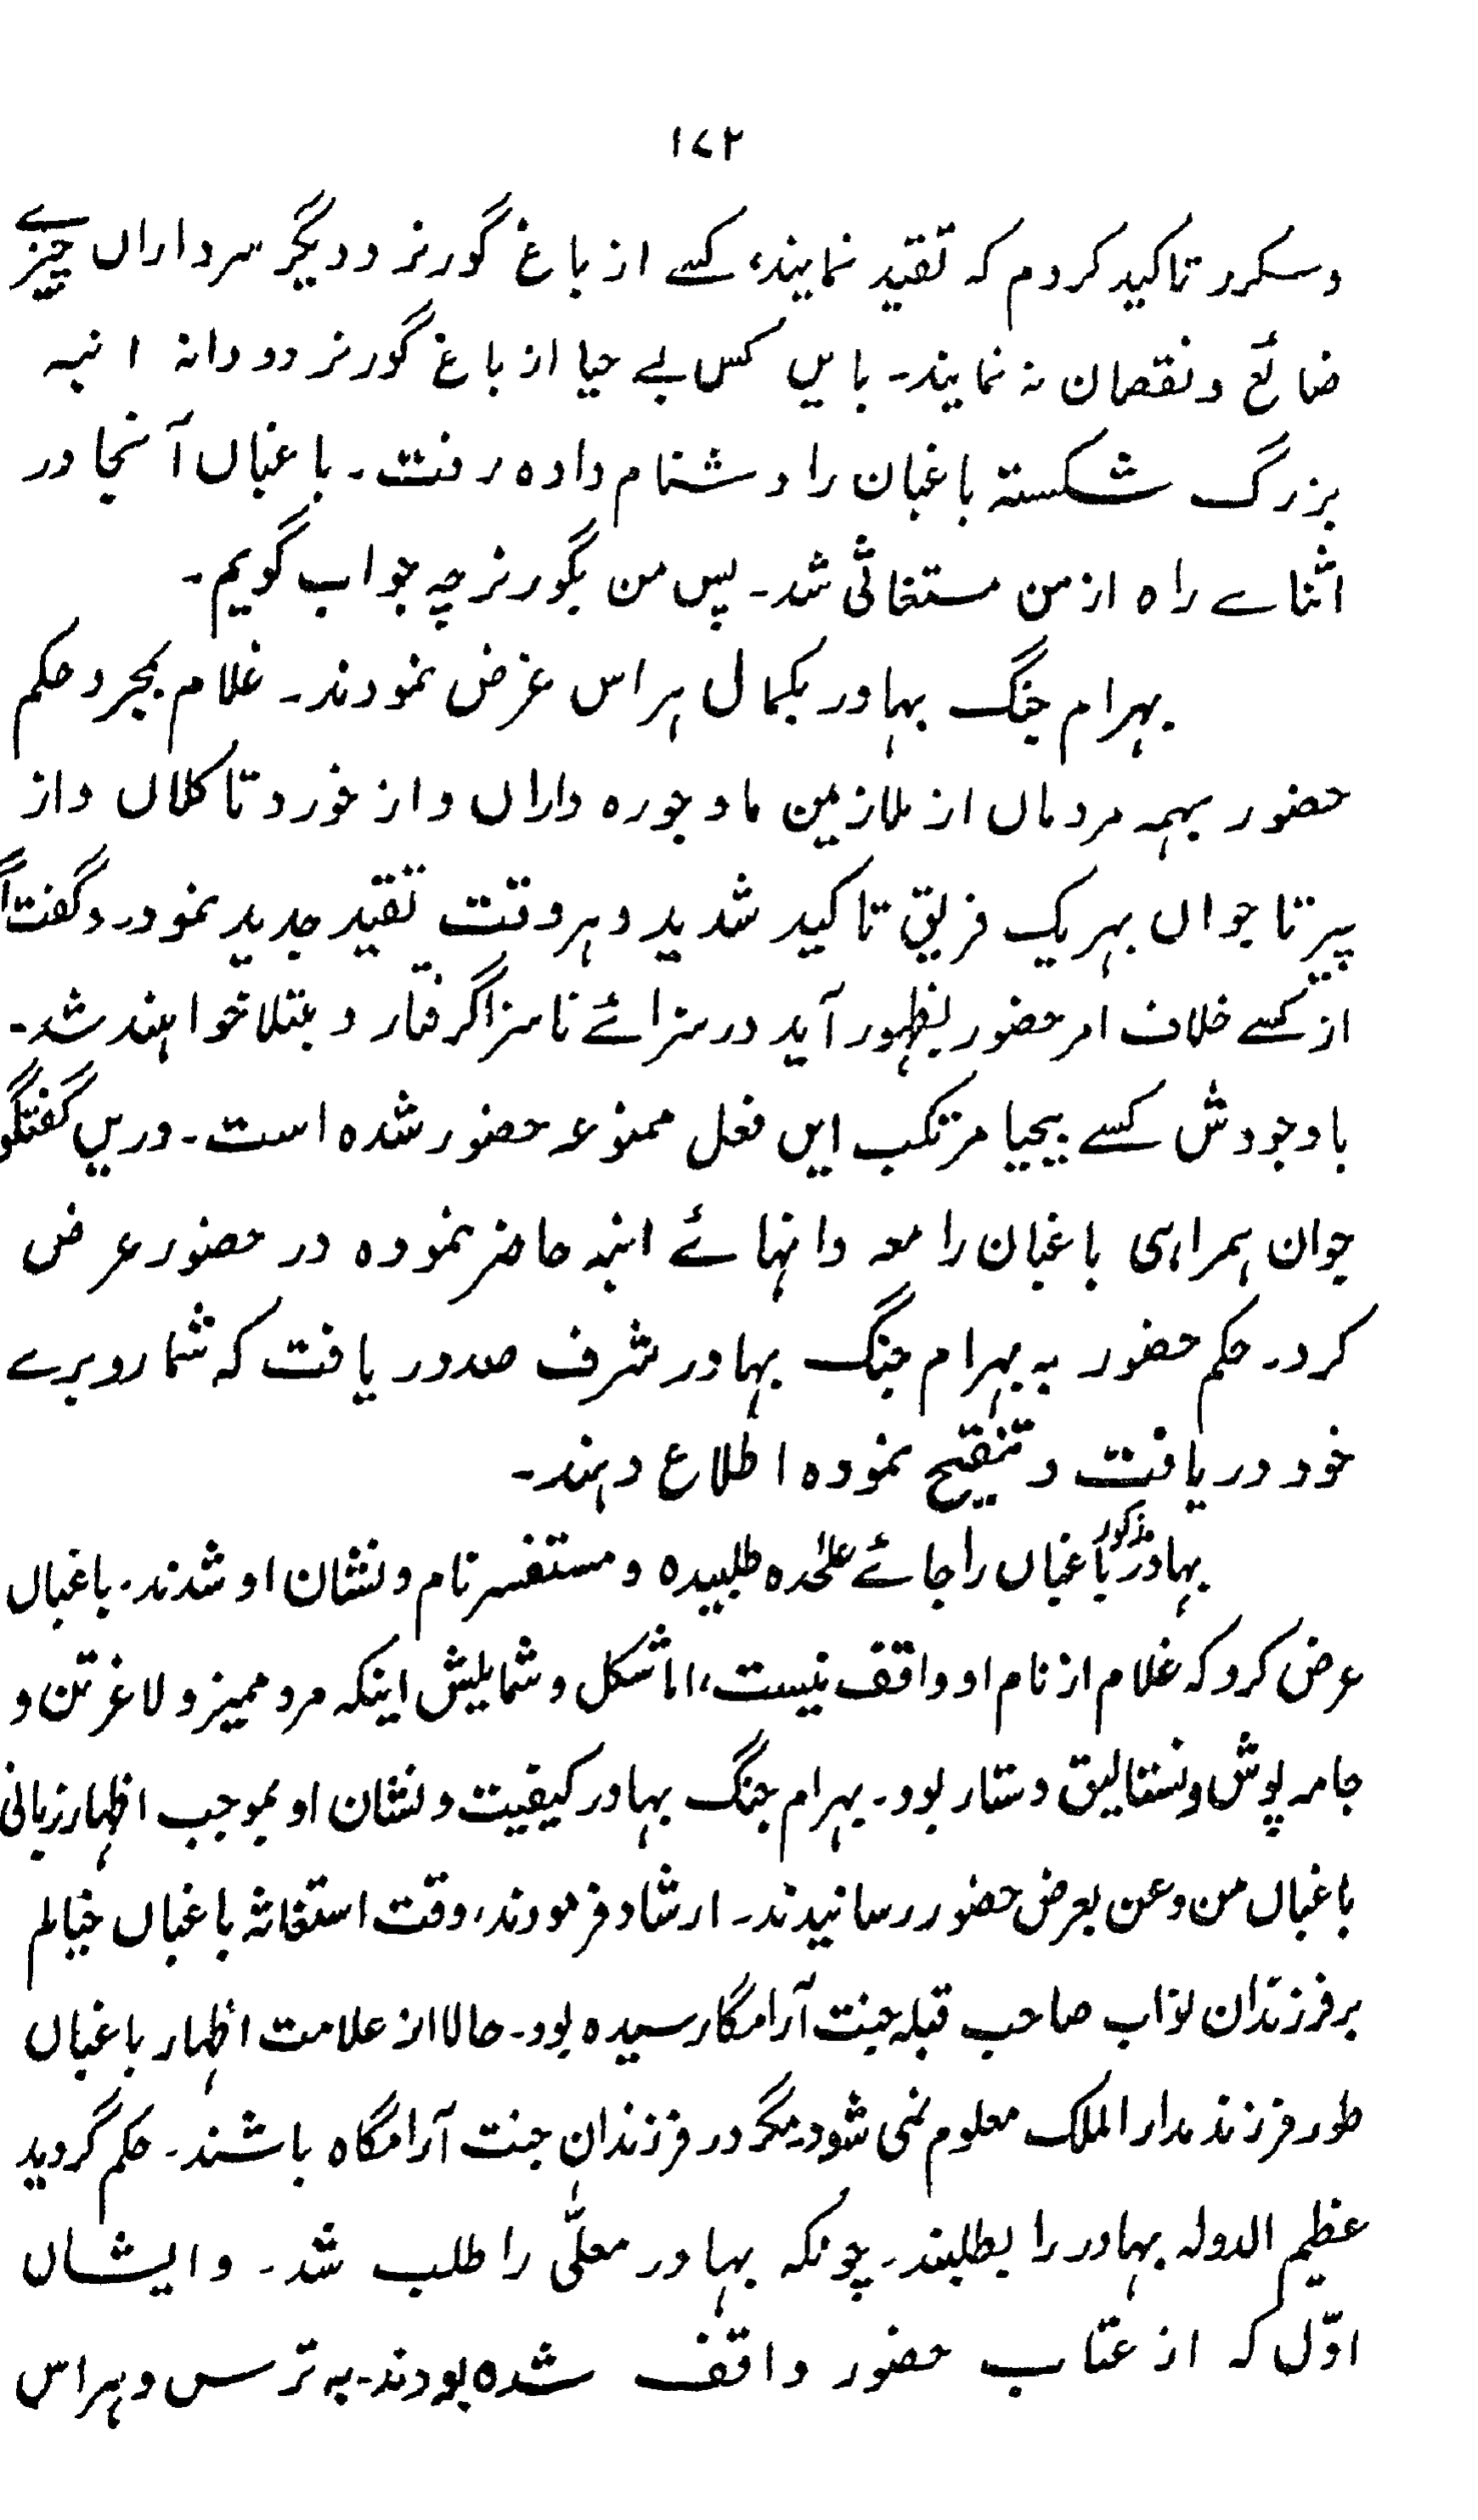 ۱۷۲
و مکرر تاکید کردم که تقید نمایند، کسے از باغ گورنر و دیگر سرداراں چیزے
ضائع و نقصان نه نمایند۔ بایں کس بے حیا از باغ گورنر دو دانه انبه
بزرگ شکسته باغبان را دشنام داده رفت۔ باغباں آنجا در
اثناے راه از من مستغاثی شد۔ پس من بگورنر چه جواب گویم۔
بہرام جنگ بہادر بکمال ہراس عرض نمودند۔ غلام بمجرد حکم
حضور بہمه مردماں از ملازمین ماد جوره داراں و از خورد تا کلاں و از
پیر تا جواں بہر یک فریق تاکید شدید و ہر وقت تقید جدید نمود و گفت اگر
از کسے خلاف امر حضور بظہور آید در سزائے ناسزا گرفتار و مبتلا خواہند شد۔
باوجودش کسے بیحیا مرتکب ایں فعل ممنوعه حضور شده است۔ دریں گفتگو
جوان ہمراہی باغبان را معه دانہائے انبه حاضر نموده در حضور عرض
کرد۔ حکم حضور به بہرام جنگ بہادر شرف صدور یافت که شما روبرے
خود دریافت و تنقیح نموده اطلاع دہند۔
بہادر مذکور باغباں را جائے علٰحده طلبیده و مستفسر نام و نشان او شدند۔ باغباں
عرض کرد که غلام از نام او واقف نیست، اما شکل و شمایلش اینکه مرد ممیز و لاغر تن و
جامه پوش و نستالیق دستار بود۔ بہرام جنگ بہادر کیفیت و نشان او بموجب اظہار زبانی
باغباں من و عن بعرض حضور رسانیدند۔ ارشاد فرمودند، وقت استغاثه باغباں خیالم
بر فرزندان نواب صاحب قبله جنت آرامگار سیده بود۔ حالا از علامت اظہار باغباں
طور فرزند مدار الملک معلوم نمی شود۔ مگر در فرزندان جنت آرامگاه باشند۔ حکم گردید
عظیم الدوله بہادر را بطلبند۔ چونکه بہادر معلّٰی را طلب شد۔ و ایشاں
اوّل که از عتاب حضور واقف شده بودند۔ به ترس و ہراس